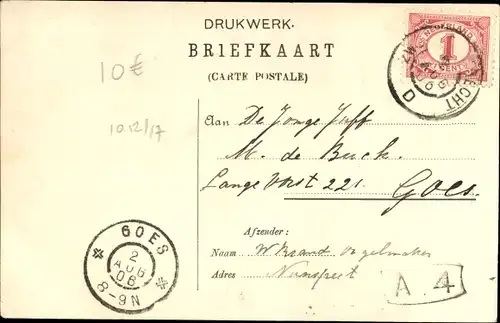 DRUKWERK.
BRIEFKAART
(CARTE POSTALE)
NEDERLAND
1
CENT
10€
1012/17
Aan De Jonge Juff
M. de Buck.
Lange Vorst 221.
Goes.
Afzender:
Naam W Brand
Adres Nunspeet
A. 4
GOES
2
AUG
06
8-9N